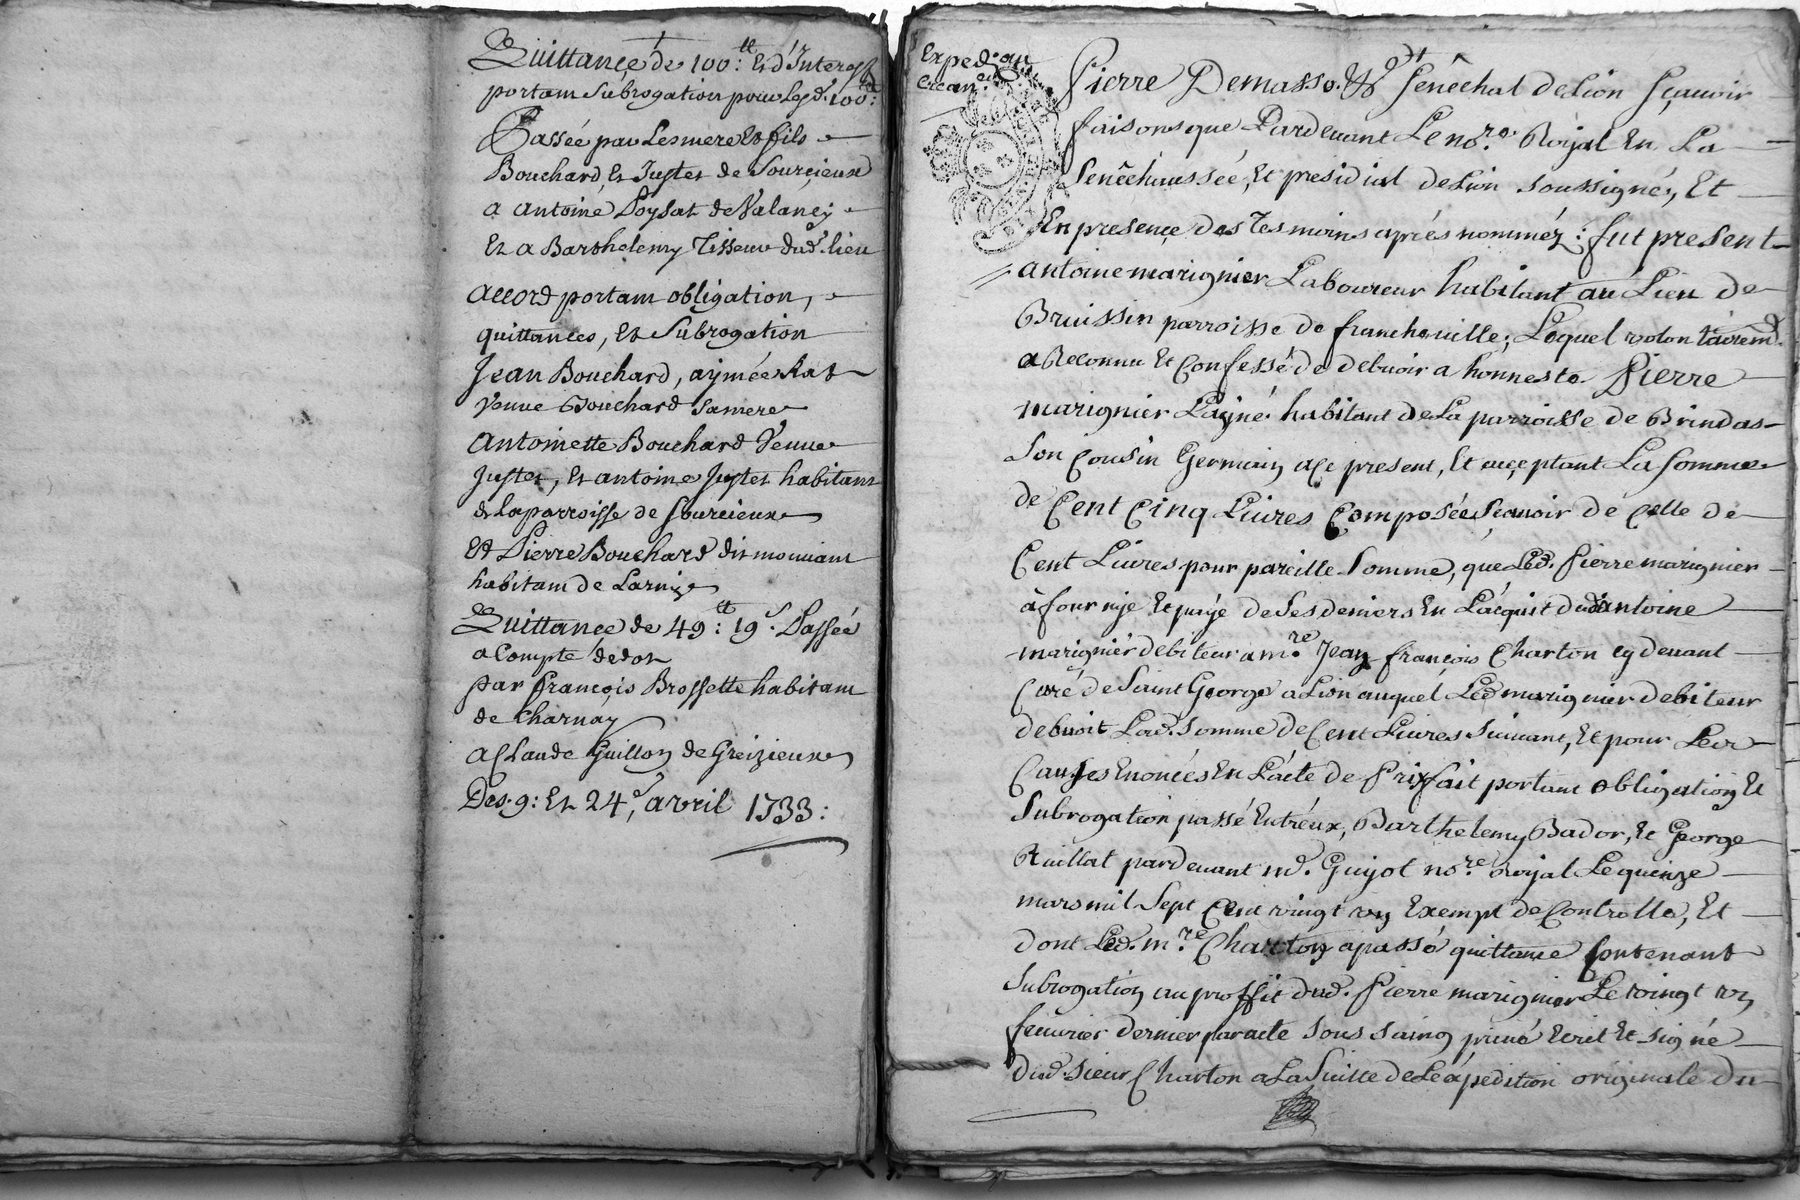 Quittance de 100:tt Et d'Interest
portant Subrogation pour Lesd. 100tt:
Passée par Les mere Et fils
Bouchard, Et Justet de Sourcieux
a antoine Loysat de Valancy
Et a Barthelemy Tisseur dud. lieu
accord portant obligation,
quittances, Et Subrogation
Jean Bouchard, aymée Rat
Veuve Bouchard Sa mere
antoinette Bouchard Veuve
Justet, Et antoine Justet habitans
de La parroisse de Sourcieux
Et Pierre Bouchard dit mouniant
habitant de Larnige
Quittance de 49:tt 19s. Passée
a Compte de dot
par françois Brossette habitant
de Charnay
a Claude Guillon de Greizieux
Des. 9: Et 24e, avril 1733:
Exped. au
Crean.er
Pierre Demasso. &a Sénêchal de Lion Sçavoir
faisons que Pardevant Le no.re Royal En La
Senêchaussée, Et presidial de Lion soussigné, Et
En presence des Tesmoins aprés nomméz: fut present
antoine marignier Laboureur habitant au Lieu de
Bruissin parroisse de francheville; Lequel volontairemt.
a Reconnu Et Confessé de debvoir a honneste Pierre
marignier L'ayné habitant de La parroisse de Brindas
Son Cousin Germain ace present, Et acceptant La Somme
de Cent Cinq Livres Composée Scavoir de Celle de
Cent Livres pour pareille Somme, que Led. Pierre marignier
à fournye Et payé de Ses deniers En L'acquit dud. antoine
marignier debiteur a m.re Jean françois Charton cy devant
Curé de Saint George a Lion auquel Led. marignier debiteur
debvoit Lad. Somme de Cent Livres Suivant, Et pour Les
Causes Enoncés En L'acte de Prixfait portant obligation Et
Subrogation passé Entréux, Barthelemy Bador, Et George
Ruillat pardevant me. Guyot no.re Royal Le quinze
mars mil Sept Cent vingt un Exempt de Controlle, Et
dont Led. m.re Charton a passé quittance Contenant
Subrogation au proffit dud. Pierre marignier Le vingt un
fevrier dernier par acte sous saing privé Ecrit Et signé
dud. sieur Charton a La Suitte de L'expedition originale du